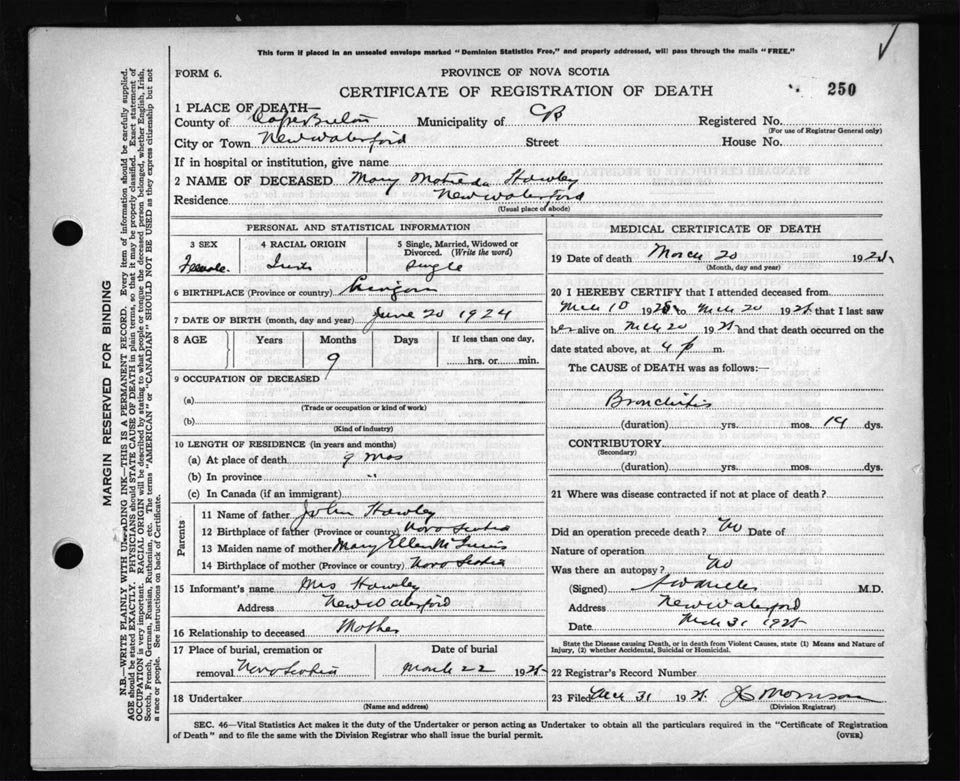 This form if placed in an unsealed envelope marked "Dominion Statistics Free," and properly addressed, will pass through the mails "FREE."
FORM 6.
PROVINCE OF NOVA SCOTIA
CERTIFICATE OF REGISTRATION OF DEATH
250
1 PLACE OF DEATH—
County of Cape Breton Municipality of CB Registered No.
(For use of Registrar General only)
City or Town New Waterford Street House No.
If in hospital or institution, give name
2 NAME OF DECEASED Mary Hawley
Residence New Waterford
(Usual place of abode)
PERSONAL AND STATISTICAL INFORMATION
3 SEX 4 RACIAL ORIGIN 5 Single, Married, Widowed or Divorced. (Write the word)
Female Irish Single
6 BIRTHPLACE (Province or country)
7 DATE OF BIRTH (month, day and year) June 20 1924
8 AGE Years Months Days If less than one day,
9 hrs. or min.
9 OCCUPATION OF DECEASED
(a)
(Trade or occupation or kind of work)
(b)
(Kind of industry)
10 LENGTH OF RESIDENCE (in years and months)
(a) At place of death 9 mos
(b) In province "
(c) In Canada (if an immigrant)
Parents
11 Name of father John Hawley
12 Birthplace of father (Province or country) Nova Scotia
13 Maiden name of mother Mary Ellen
14 Birthplace of mother (Province or country) Nova Scotia
15 Informant's name Mrs Hawley
Address New Waterford
16 Relationship to deceased Mother
17 Place of burial, cremation or removal Nova Scotia Date of burial March 22 1925
18 Undertaker
(Name and address)
MEDICAL CERTIFICATE OF DEATH
19 Date of death March 20 1925
(Month, day and year)
20 I HEREBY CERTIFY that I attended deceased from
Mch 10 1925 to Mch 20 1925 that I last saw
her alive on Mch 20 1925 and that death occurred on
date stated above, at 4 p m.
The CAUSE of DEATH was as follows:—
Bronchitis
(duration) yrs. mos. 14 dys.
CONTRIBUTORY
(Secondary)
(duration) yrs. mos. dys.
21 Where was disease contracted if not at place of death?
Did an operation precede death? No Date of
Nature of operation
Was there an autopsy? No
(Signed) M.D.
Address New Waterford
Date Mch 31 1925
State the Disease causing Death, or in death from Violent Causes, state (1) Means and Nature of
Injury, (2) whether Accidental, Suicidal or Homicidal.
22 Registrar's Record Number
23 Filed Mch 31 1925 Morrison
(Division Registrar)
SEC. 46—Vital Statistics Act makes it the duty of the Undertaker or person acting as Undertaker to obtain all the particulars required in the "Certificate of Registration
of Death" and to file the same with the Division Registrar who shall issue the burial permit.
(OVER)
MARGIN RESERVED FOR BINDING
N.B.—WRITE PLAINLY WITH UNFADING INK—THIS IS A PERMANENT RECORD. Every item of information should be carefully supplied.
AGE should be stated EXACTLY. PHYSICIANS should STATE CAUSE OF DEATH in plain terms, so that it may be properly classified. Exact statement of
OCCUPATION is very important. RACIAL ORIGIN will be described by stating to what people or tongue the deceased person belonged, whether English, Irish,
Scotch, French, German, Russian, Ruthenian, etc. The terms "AMERICAN" or "CANADIAN" SHOULD NOT BE USED as they express citizenship but not
a race or people. See instructions on back of Certificate.